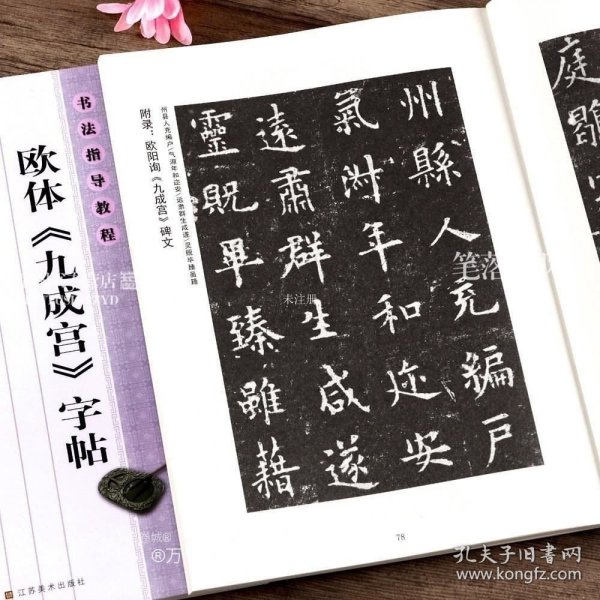 书法指导教程
欧体《九成宫》字帖
江苏美术出版社
附录：欧阳询《九成宫》碑文
州县人充编户/气淑年和迩安/远肃群生咸遂/灵贶毕臻虽藉
州縣人充編戶
氣淑年和迩安
遠肅群生咸遂
靈貺畢臻雖藉
78
庭
未注册
笔落
孔夫子旧书网
www.kongfz.com